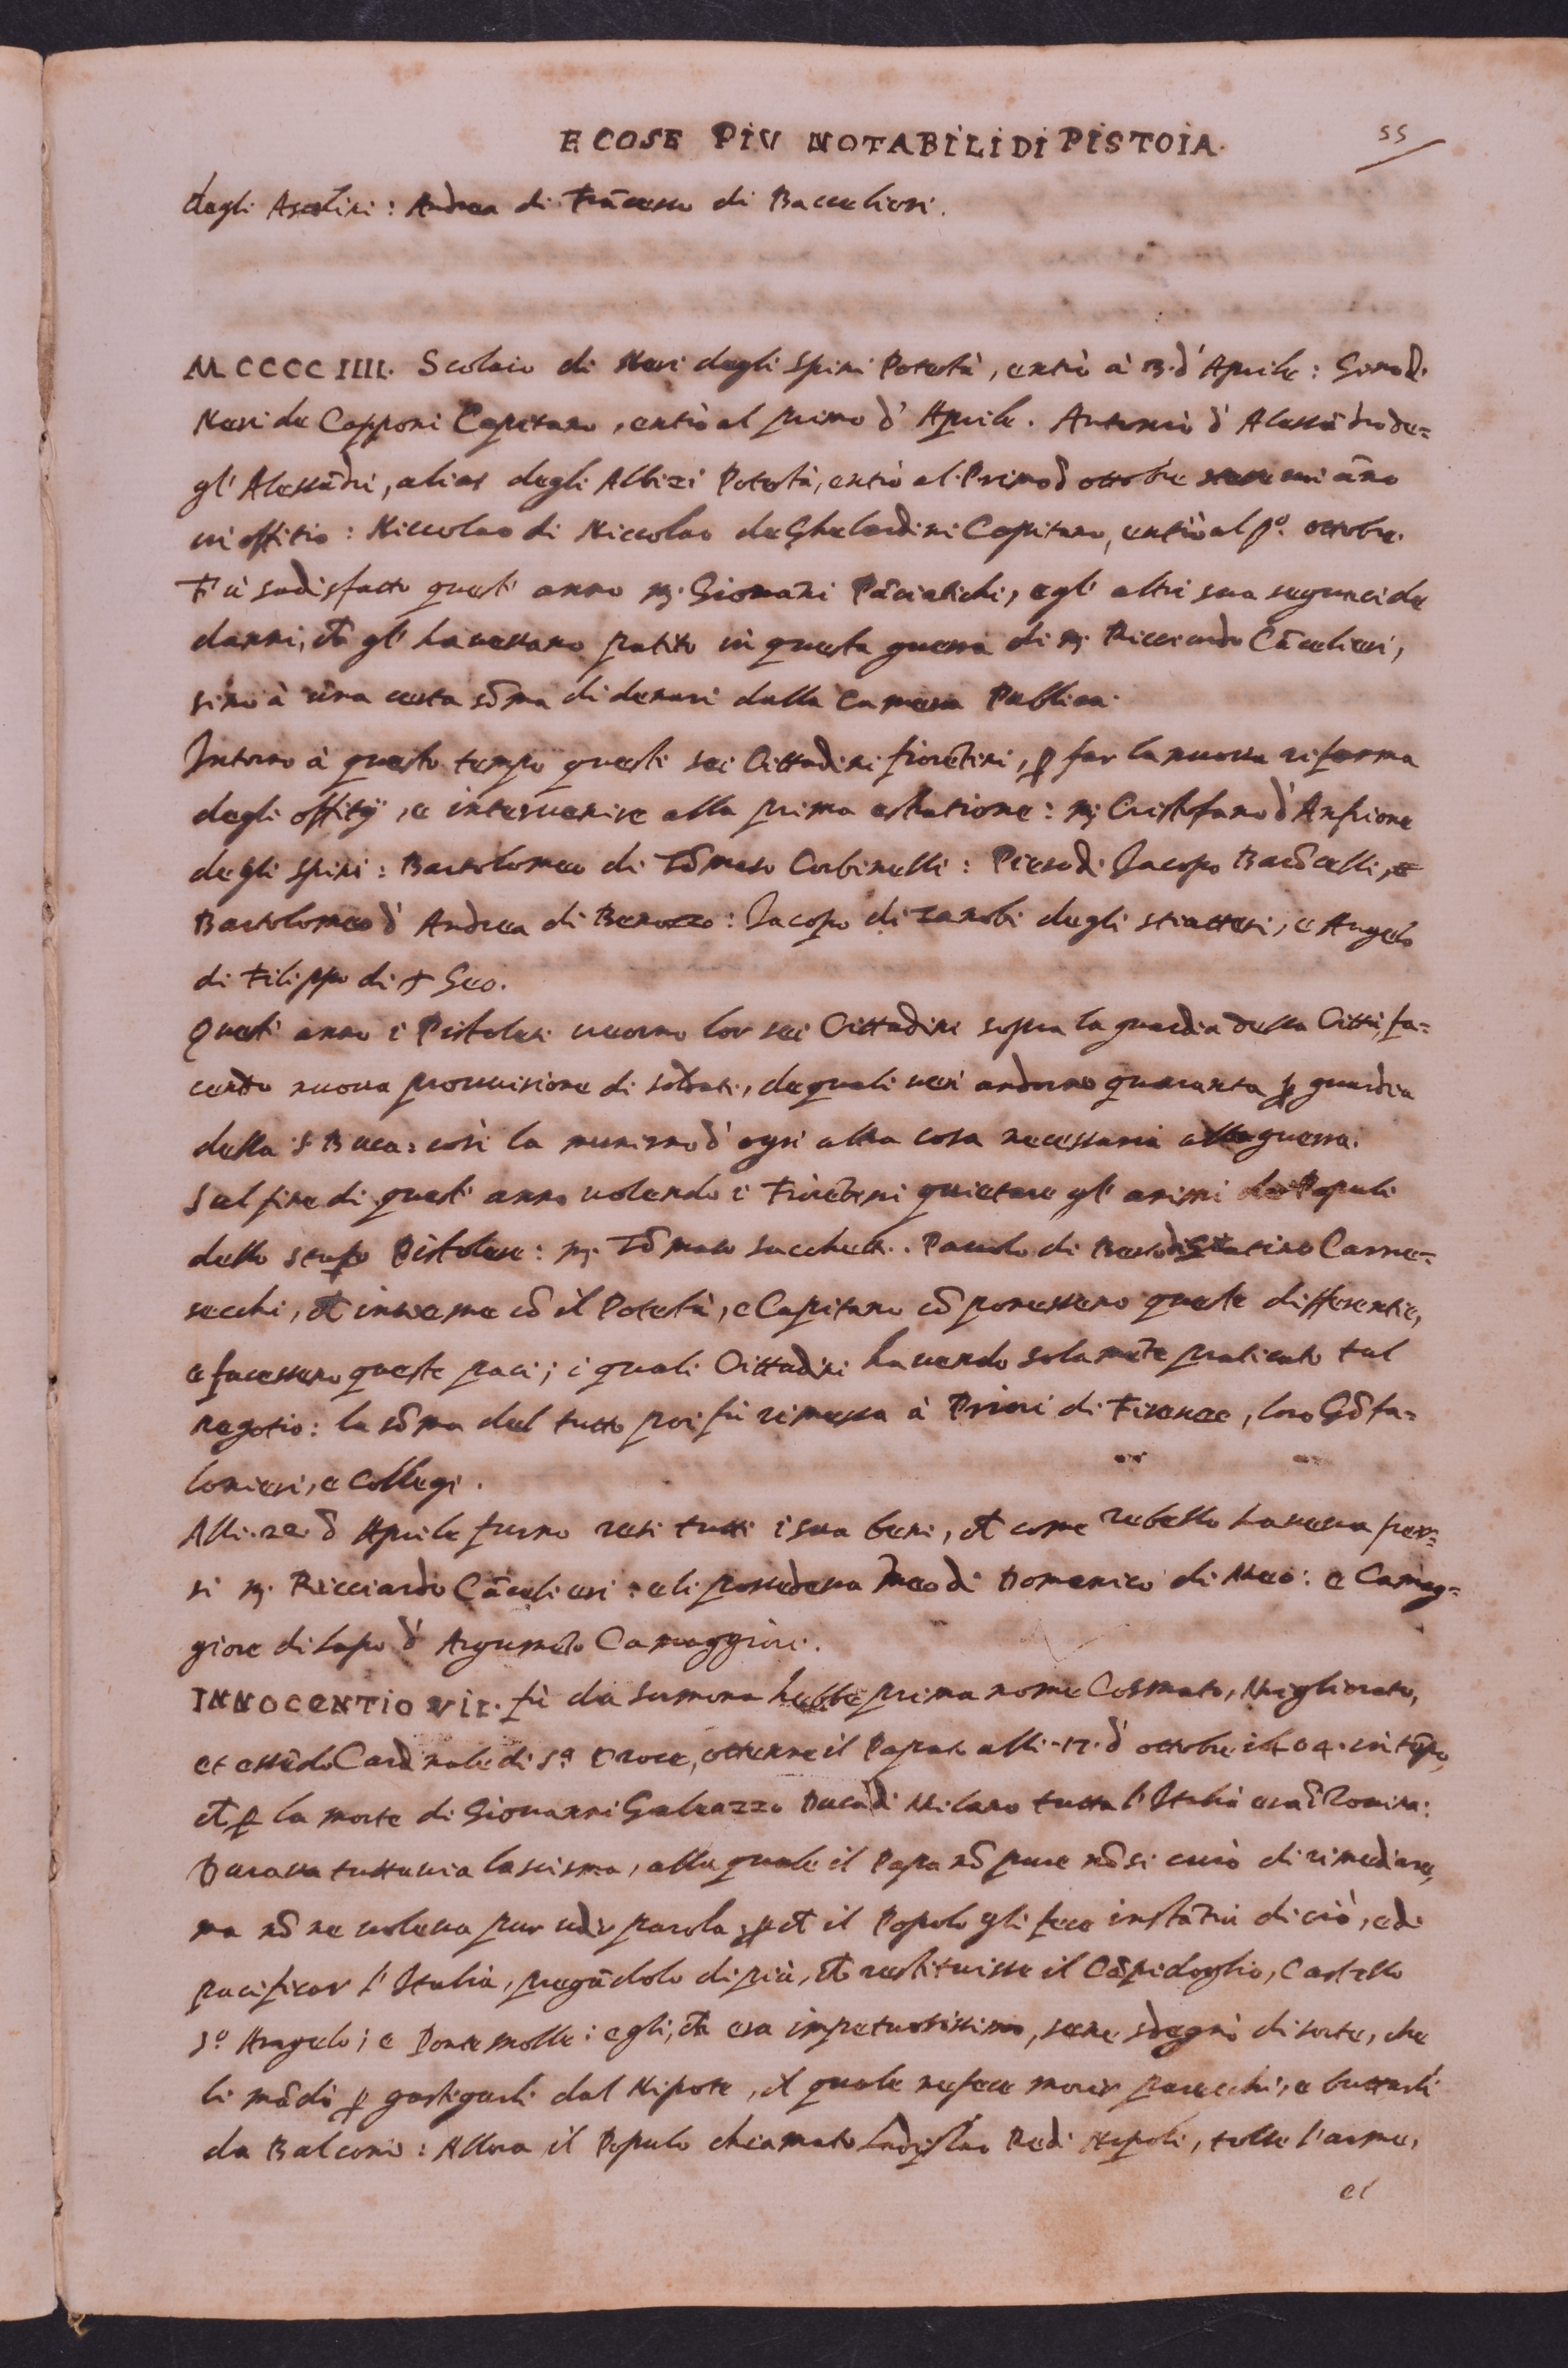 E COSE PIV NOTABILI DI PISTOIA.
55
degli Ascolini: Andrea di Frācesco di Baccelieri.
MCCCCIIII. Scolaio di Neri degli Spini Potestà, entrò à 13. d'Aprile: Gino di
Neri de Capponi Capitano, entrò al primo d'Aprile. Antonio d'Alessādro de=
gl'Alessādri, alias degli Albizi Potestà, entrò al Primo d ottobre un āno
in offitio: Niccolao di Niccolao de Ghelardini Capitano, entrò al pº. ottobre.
Fù sadisfatto quest'anno M. Giovāni Pāciatichi, e gl'altri sua seguaci de
danni, ch̄ gl'havessano patito in questa guerra di M. Ricciardo Cācelieri,
sino à una certa sōma di denari dalla Camera Publica.
Intorno à questo tempo questi sei Cittadini fiorētini, p far la nuova riforma
degli offitij, e intervenire alla prima estratione: M. Cristofano d'Anfione
degli Spini: Bartolomeo di Tōmaso Corbinelli: Piero di Jacopo Barōcelli, e
Bartolomeo d'Andrea di Benozzo: Jacopo di Zanobi degli Sciatteri, e Angelo
di Filippo di S Geo.
Quest'anno i Pistolesi creorno lor sei Cittadini sopra la guardia della Città, fa=
cendo nuova provvisione di soldati, de quali ne andorno quaranta p guardia
della S Buca: così la munirno d'ogni altra cosa necessaria alla guerra.
Sul fine di quest'anno volendo i Fiorētini quietare gl'animi de Populi
dello stato Pistolese: M. Tōmaso Sacchetti. Paolo di Berto di Carne=
secchi, ch̄ insieme cō il Potestà, e Capitano cōponessero queste differentie,
e facessero queste paci; i quali Cittadini havendo solamēte praticato tal
negotio: la sōma del tutto poi fù rimessa à Priori di Firenze, loro Gōfa=
lonieri, e Collegi.
Alli 22 d Aprile furno resi tutti i sua beni, ch̄ come rebello haveva per=
si M. Ricciardo Cācelieri: e li possedeva Meo di Domenico di Meo: e Camag=
giore di Lapo d'Argumēto Camaggiori.
INNOCENTIO VII. fù da Sermona hebbe prima nome Cosmato, Migliorato,
et essēdo Cardinale di Sª Croce, ottenne il Papato alli 17. d'ottobre 1404. in tēpo,
ch̄ p la morte di Giovanni Galeazzo Duca di Milano tutta l'Italia era ī Rovina:
Durava tuttavia la scisma, alla quale il Papa nō pure nō si curò di rimediare,
ma nō ne voleva pur udir parola; p ch̄ il Popolo gli fece instātia di ciò, e di
pacificar l'Italia, pregādolo di più, ch̄ restituisse il Cāpidoglio, Castello
Sº Angelo; e Ponte Molle: egli, ch̄ era impetuosissimo, se ne sdegnò di sorte, che
li mādò p gastigarli dal Nipote, il quale ne fece morir parecchi, e buttarli
da Balconi: Allora il Populo chiamato Ladislao Re di Napoli, tolse l'arme,
el